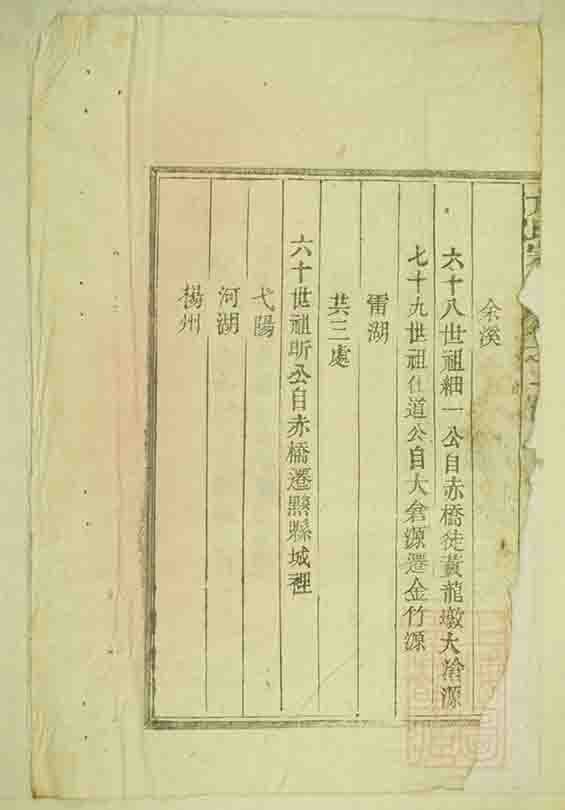 余溪
六十八世祖細一公自赤橋徒黃龍墩大滄源
七十九世祖仕道公自大倉源遷金竹源
雷湖
共三處
六十世祖昕公自赤橋遷黟縣城裡
弋陽
河湖
楊州